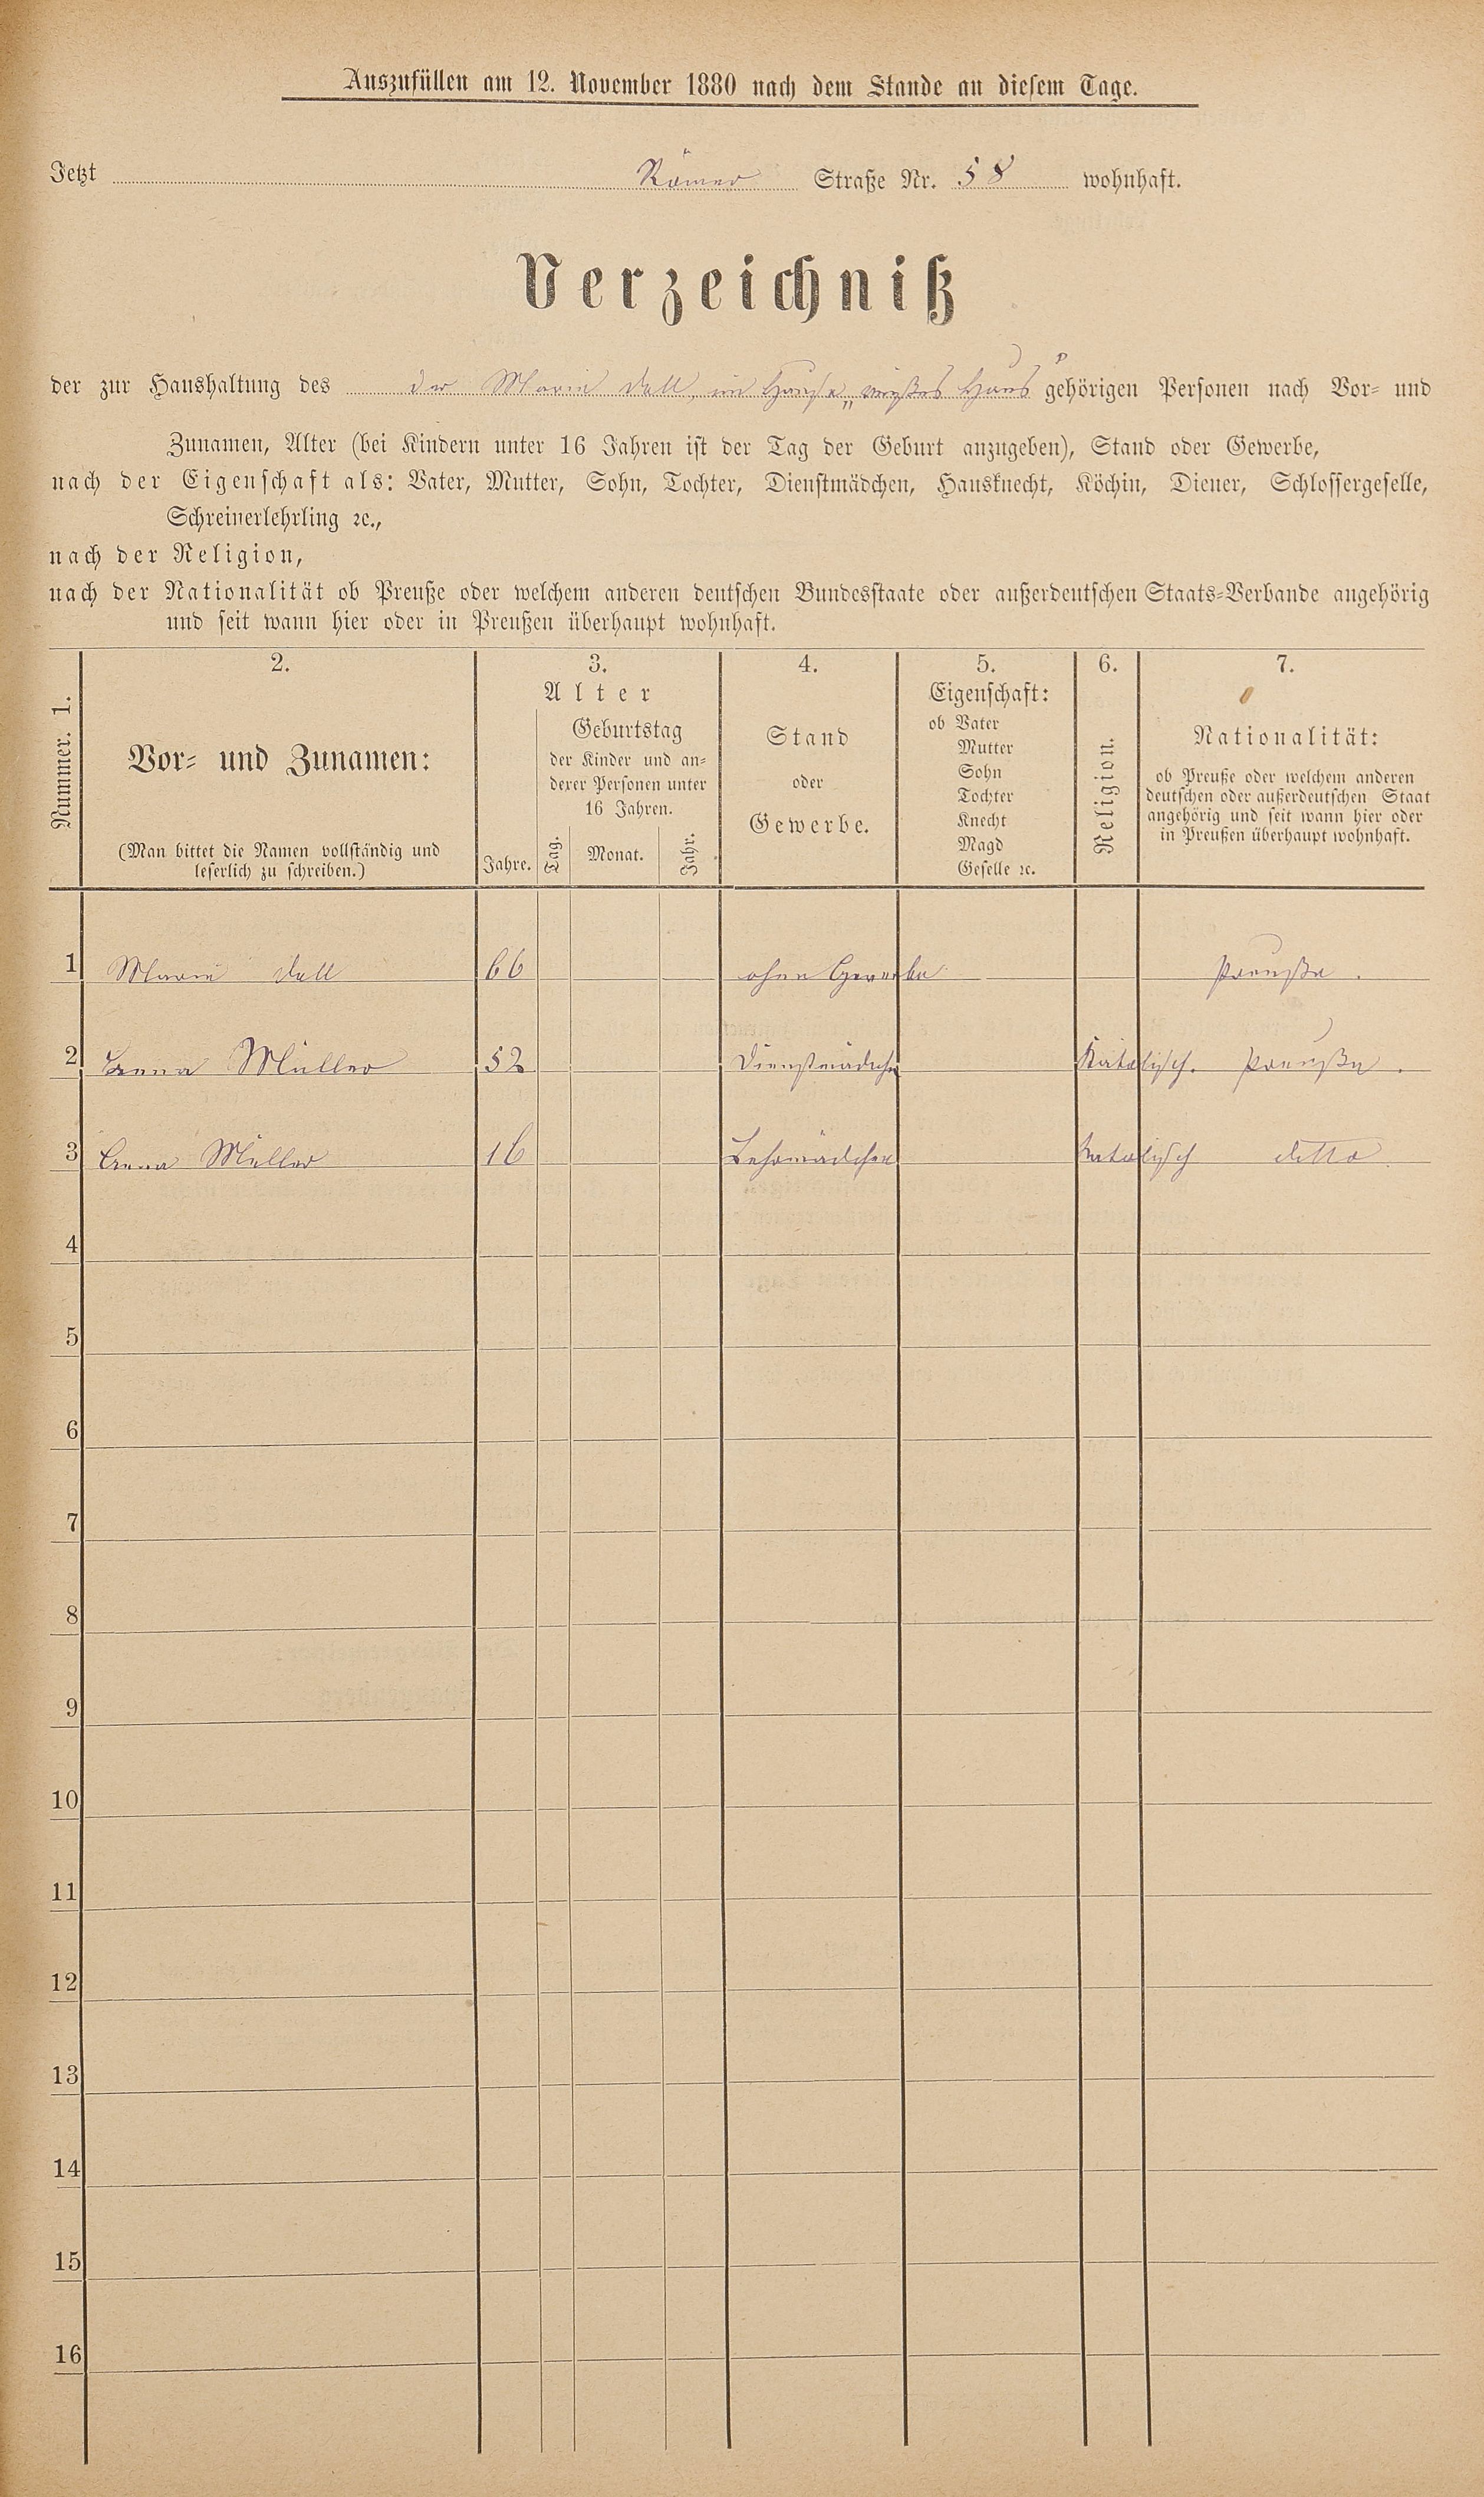 Auszufüllen am 12. November 1880 nach dem Stande an diesem Tage.
Jetzt Römer Straße Nr. 58 wohnhaft.
Verzeichniß
der zur Haushaltung des der Marie Dall, im Hause „weißes Haus“ gehörigen Personen nach Vor- und
Zunamen, Alter (bei Kindern unter 16 Jahren ist der Tag der Geburt anzugeben), Stand oder Gewerbe,
nach der Eigenschaft als: Vater, Mutter, Sohn, Tochter, Dienstmädchen, Hausknecht, Köchin, Diener, Schlossergeselle,
Schreinerlehrling ꝛc.,
nach der Religion,
nach der Nationalität ob Preuße oder welchem anderen deutschen Bundesstaate oder außerdeutschen Staats-Verbande angehörig
und seit wann hier oder in Preußen überhaupt wohnhaft.
Nummer. 1.
2.
Vor- und Zunamen:
(Man bittet die Namen vollständig und
leserlich zu schreiben.)
3.
Alter
Jahre.
Geburtstag
der Kinder und an-
derer Personen unter
16 Jahren.
Tag. Monat. Jahr.
4.
Stand
oder
Gewerbe.
5.
Eigenschaft:
ob Vater
Mutter
Sohn
Tochter
Knecht
Magd
Geselle ꝛc.
6.
Religion.
7.
Nationalität:
ob Preuße oder welchem anderen
deutschen oder außerdeutschen Staat
angehörig und seit wann hier oder
in Preußen überhaupt wohnhaft.
1 Marie Dall 66 ohne Gewerbe Preuße.
2 Müller 52 Dienstmädchen Katolisch. Preuße.
3 Anna Müller 16 Lehrmädchen Katolisch ditto
4
5
6
7
8
9
10
11
12
13
14
15
16